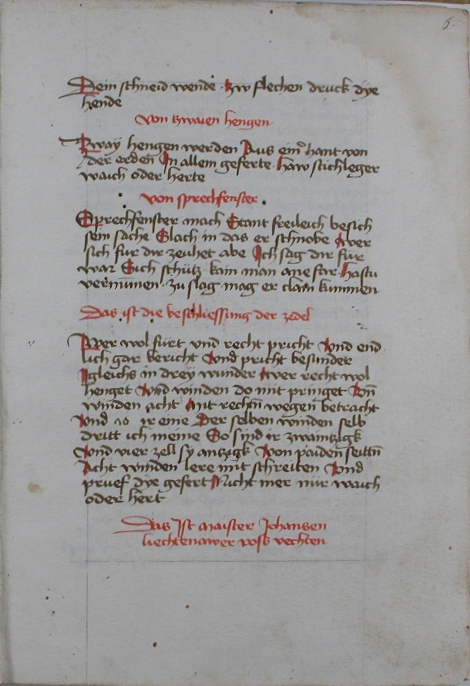 6.
Dein schneid wende · zw flechen druck dye
hende
Von zwaien hengen
Zway hengen werden Aus einer hant von
der erden In allem geferte · haw stich leger
waich oder herte
Von sprechfenster ·
Sprechfenster mach Stant freileich besich
sein sache Slach in das er schnabe Wer
sich fur dir zeuhet abe Ich sag dir fur
war Sich schutz kain man ane far · hastu
vernumen · zu slag mag er clain kummen
Das ist die beschliessung der zedel
Wer wol fürt vnd recht pricht Vnd end
lich gar bericht Vnd pricht besunder
Igleichs in drey wunder Wer recht wol
henget Vnd winden do mit pringet Vnd
winden acht Mit rechten wegen betracht
Vnd io ir eine Der selben winden selb
dritt ich meine So sind ir zwaintzigk
Vnd vier zell sy antzigk Von paiden seitten
Acht winden lere mit schreiten Vnd
pruef dye gefert Nicht mer nur waich
oder hert
Das Ist maister Johansen
liechtenawer ross vechten